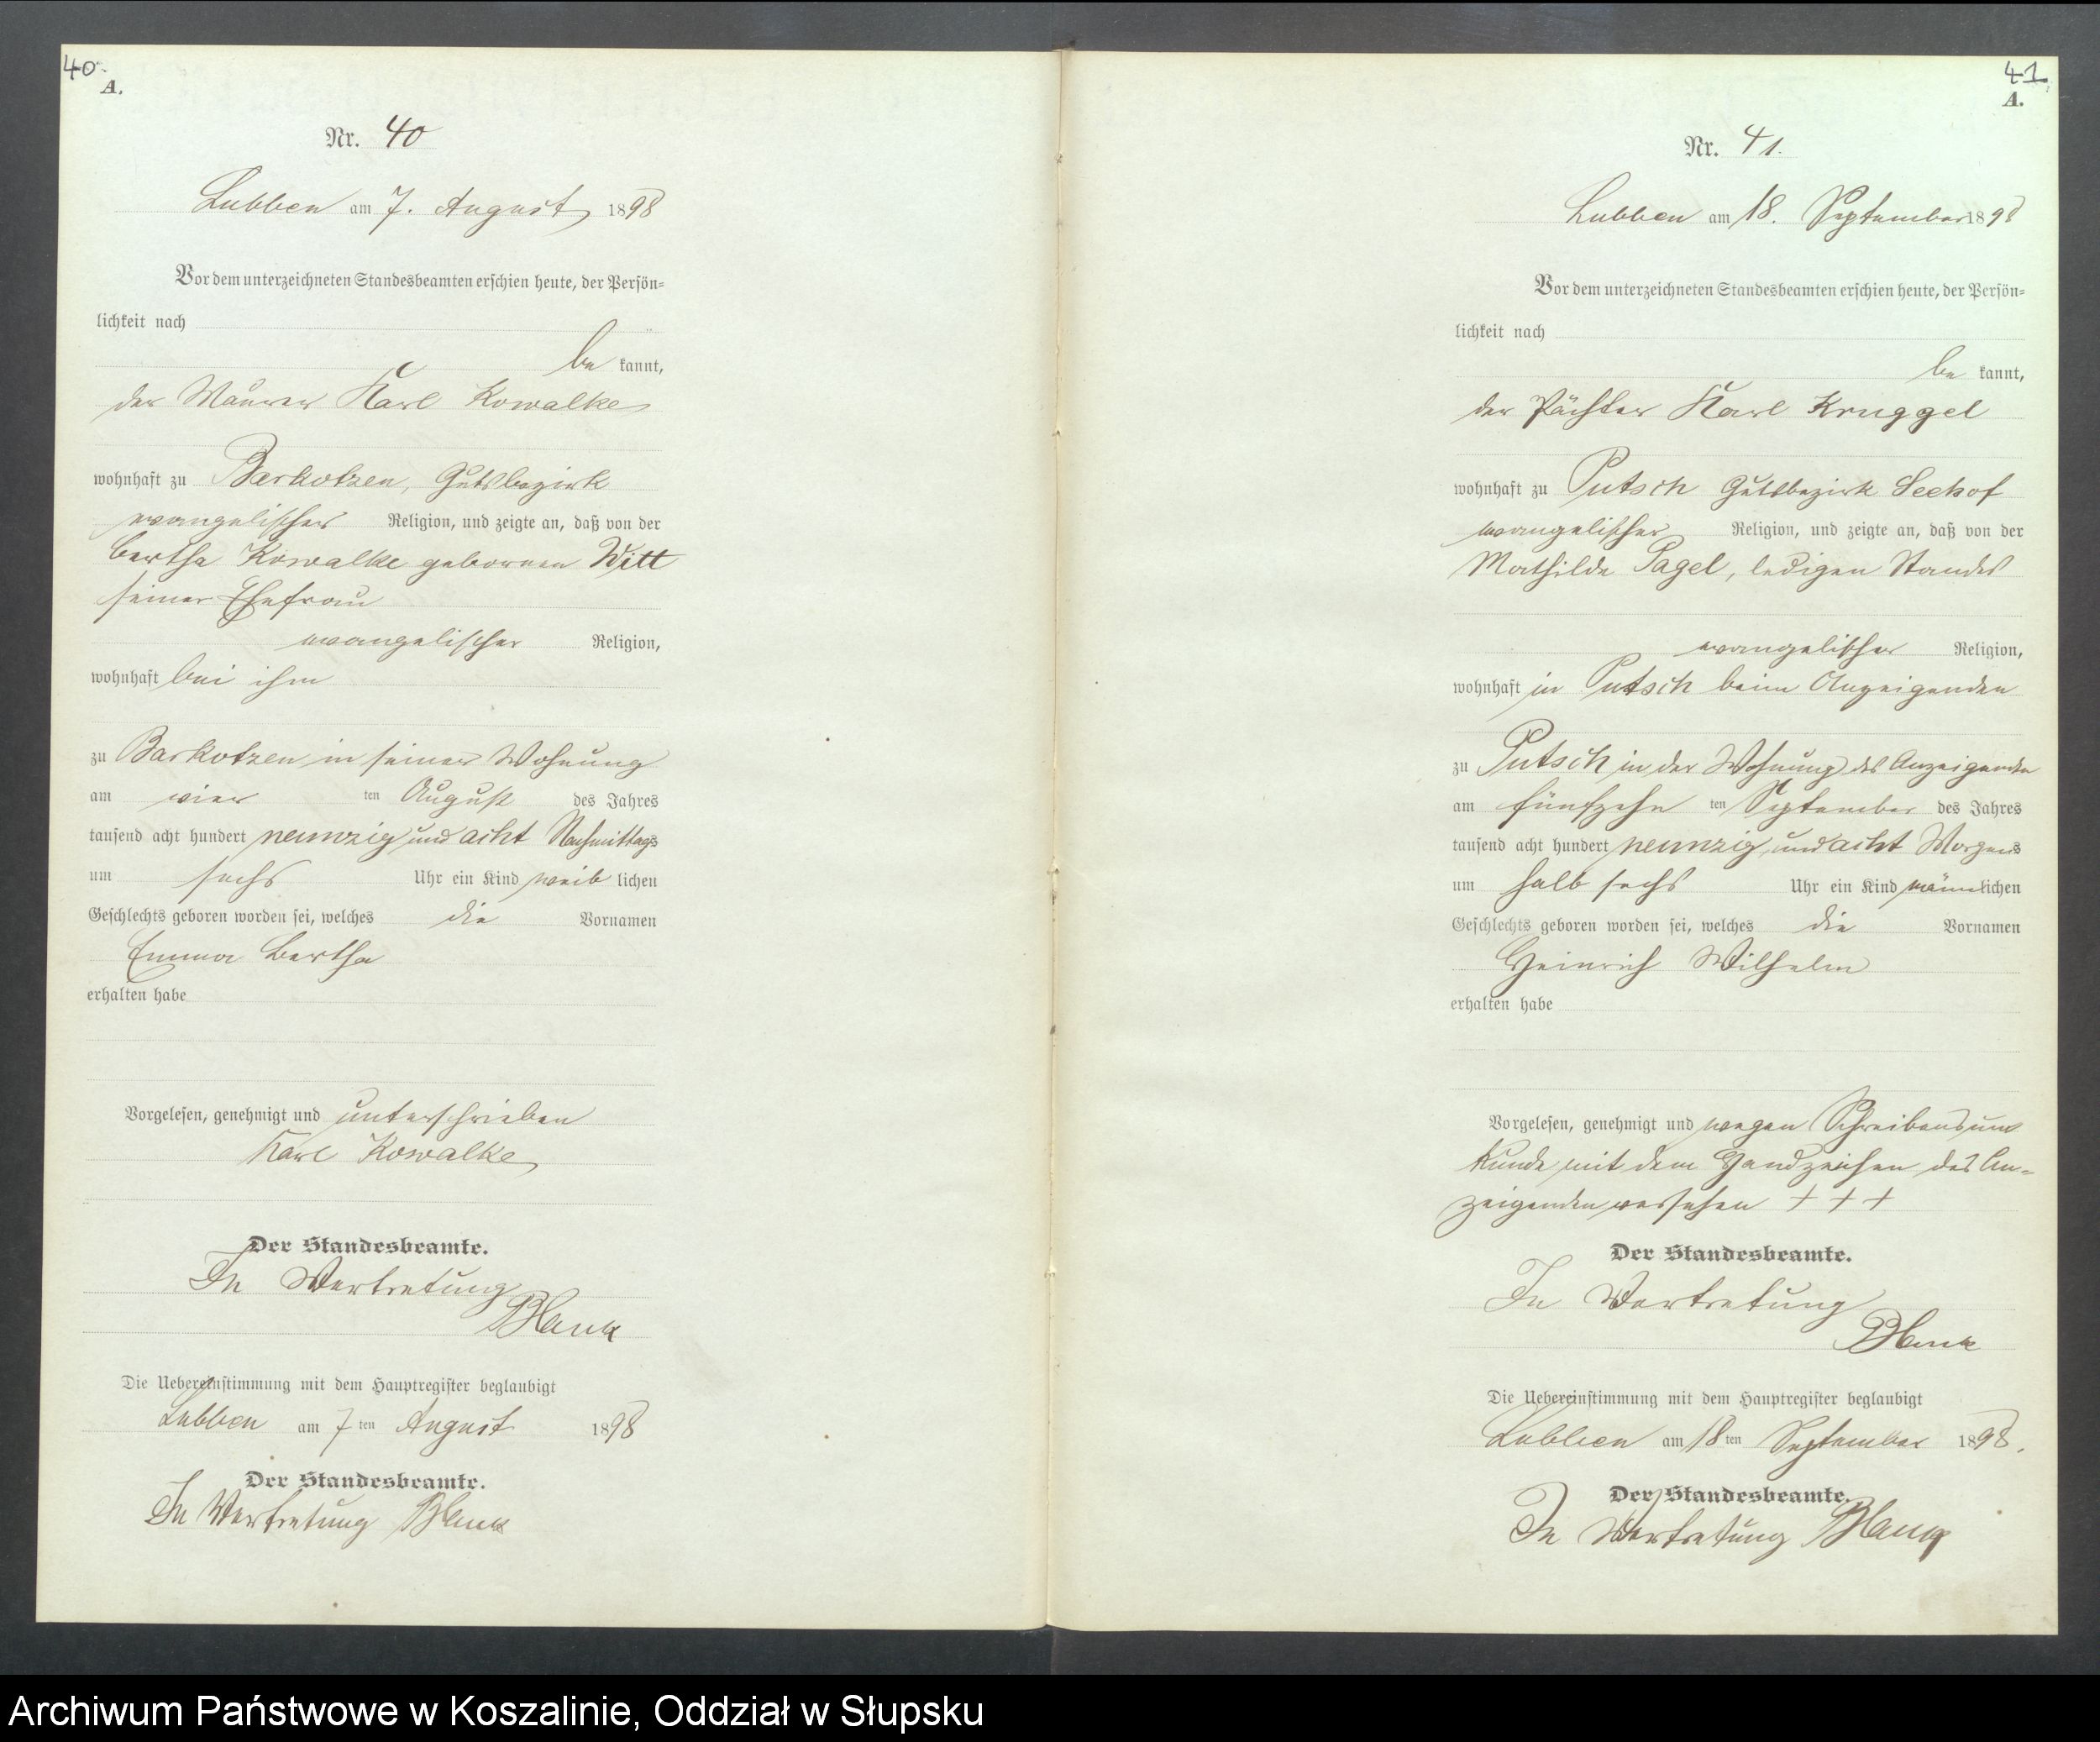 40.
A.
Nr. 40
Lubben am 7. August 1898
Vor dem unterzeichneten Standesbeamten erschien heute, der Persön=
lichkeit nach
be kannt,
der Maurer Karl Kowalke
wohnhaft zu Barkotzen, Gutsbezirk
evangelischer Religion, und zeigte an, daß von der
Bertha Kowalke gebornen Witt
seiner Ehefrau
evangelischer Religion,
wohnhaft bei ihm
zu Barkotzen in seiner Wohnung
am vier ten August des Jahres
tausend acht hundert neunzig und acht Nachmittags
um sechs Uhr ein Kind weib lichen
Geschlechts geboren worden sei, welches die Vornamen
Emma Bertha
erhalten habe
Vorgelesen, genehmigt und unterschrieben
Karl Kowalke
Der Standesbeamte.
In Vertretung
Blank
Die Uebereinstimmung mit dem Hauptregister beglaubigt
Lubben am 7 ten August 1898
Der Standesbeamte.
In Vertretung Blank
41.
A.
Nr. 41.
Lubben am 18. September 1898
Vor dem unterzeichneten Standesbeamten erschien heute, der Persön=
lichkeit nach
be kannt,
der Pächter Karl Kruggel
wohnhaft zu Putsch Gutsbezirk Seehof
evangelischer Religion, und zeigte an, daß von der
Mathilde Pagel, ledigen Standes
evangelischer Religion,
wohnhaft in Putsch beim Anzeigenden
zu Putsch in der Wohnung des Anzeigenden
am fünfzehn ten September des Jahres
tausend acht hundert neunzig und acht Morgens
um halb sechs Uhr ein Kind männlichen
Geschlechts geboren worden sei, welches die Vornamen
Heinrich Wilhelm
erhalten habe
Vorgelesen, genehmigt und wegen Schreibensun
kunde mit dem Handzeichen des An=
zeigenden versehen + + +
Der Standesbeamte.
In Vertretung
Blank
Die Uebereinstimmung mit dem Hauptregister beglaubigt
Lubben am 18 ten September 1898.
Der Standesbeamte.
In Vertretung Blank
Archiwum Państwowe w Koszalinie, Oddział w Słupsku